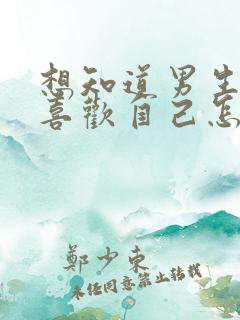 想知道男生
喜歡自己怎
鄭少東
未經同意禁止轉載